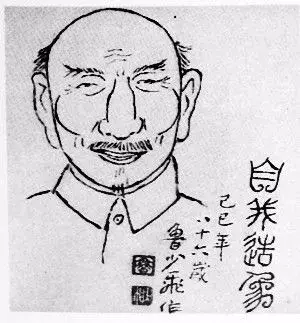 自我造象
己巳年
八十六歲
魯少飛作